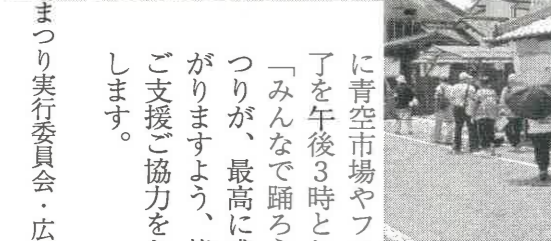 に青空市場やフ
了を午後3時と
「みんなで踊ろう
つりが、最高に
がりますよう、
ご支援ご協力を
します。
まつり実行委員会・広